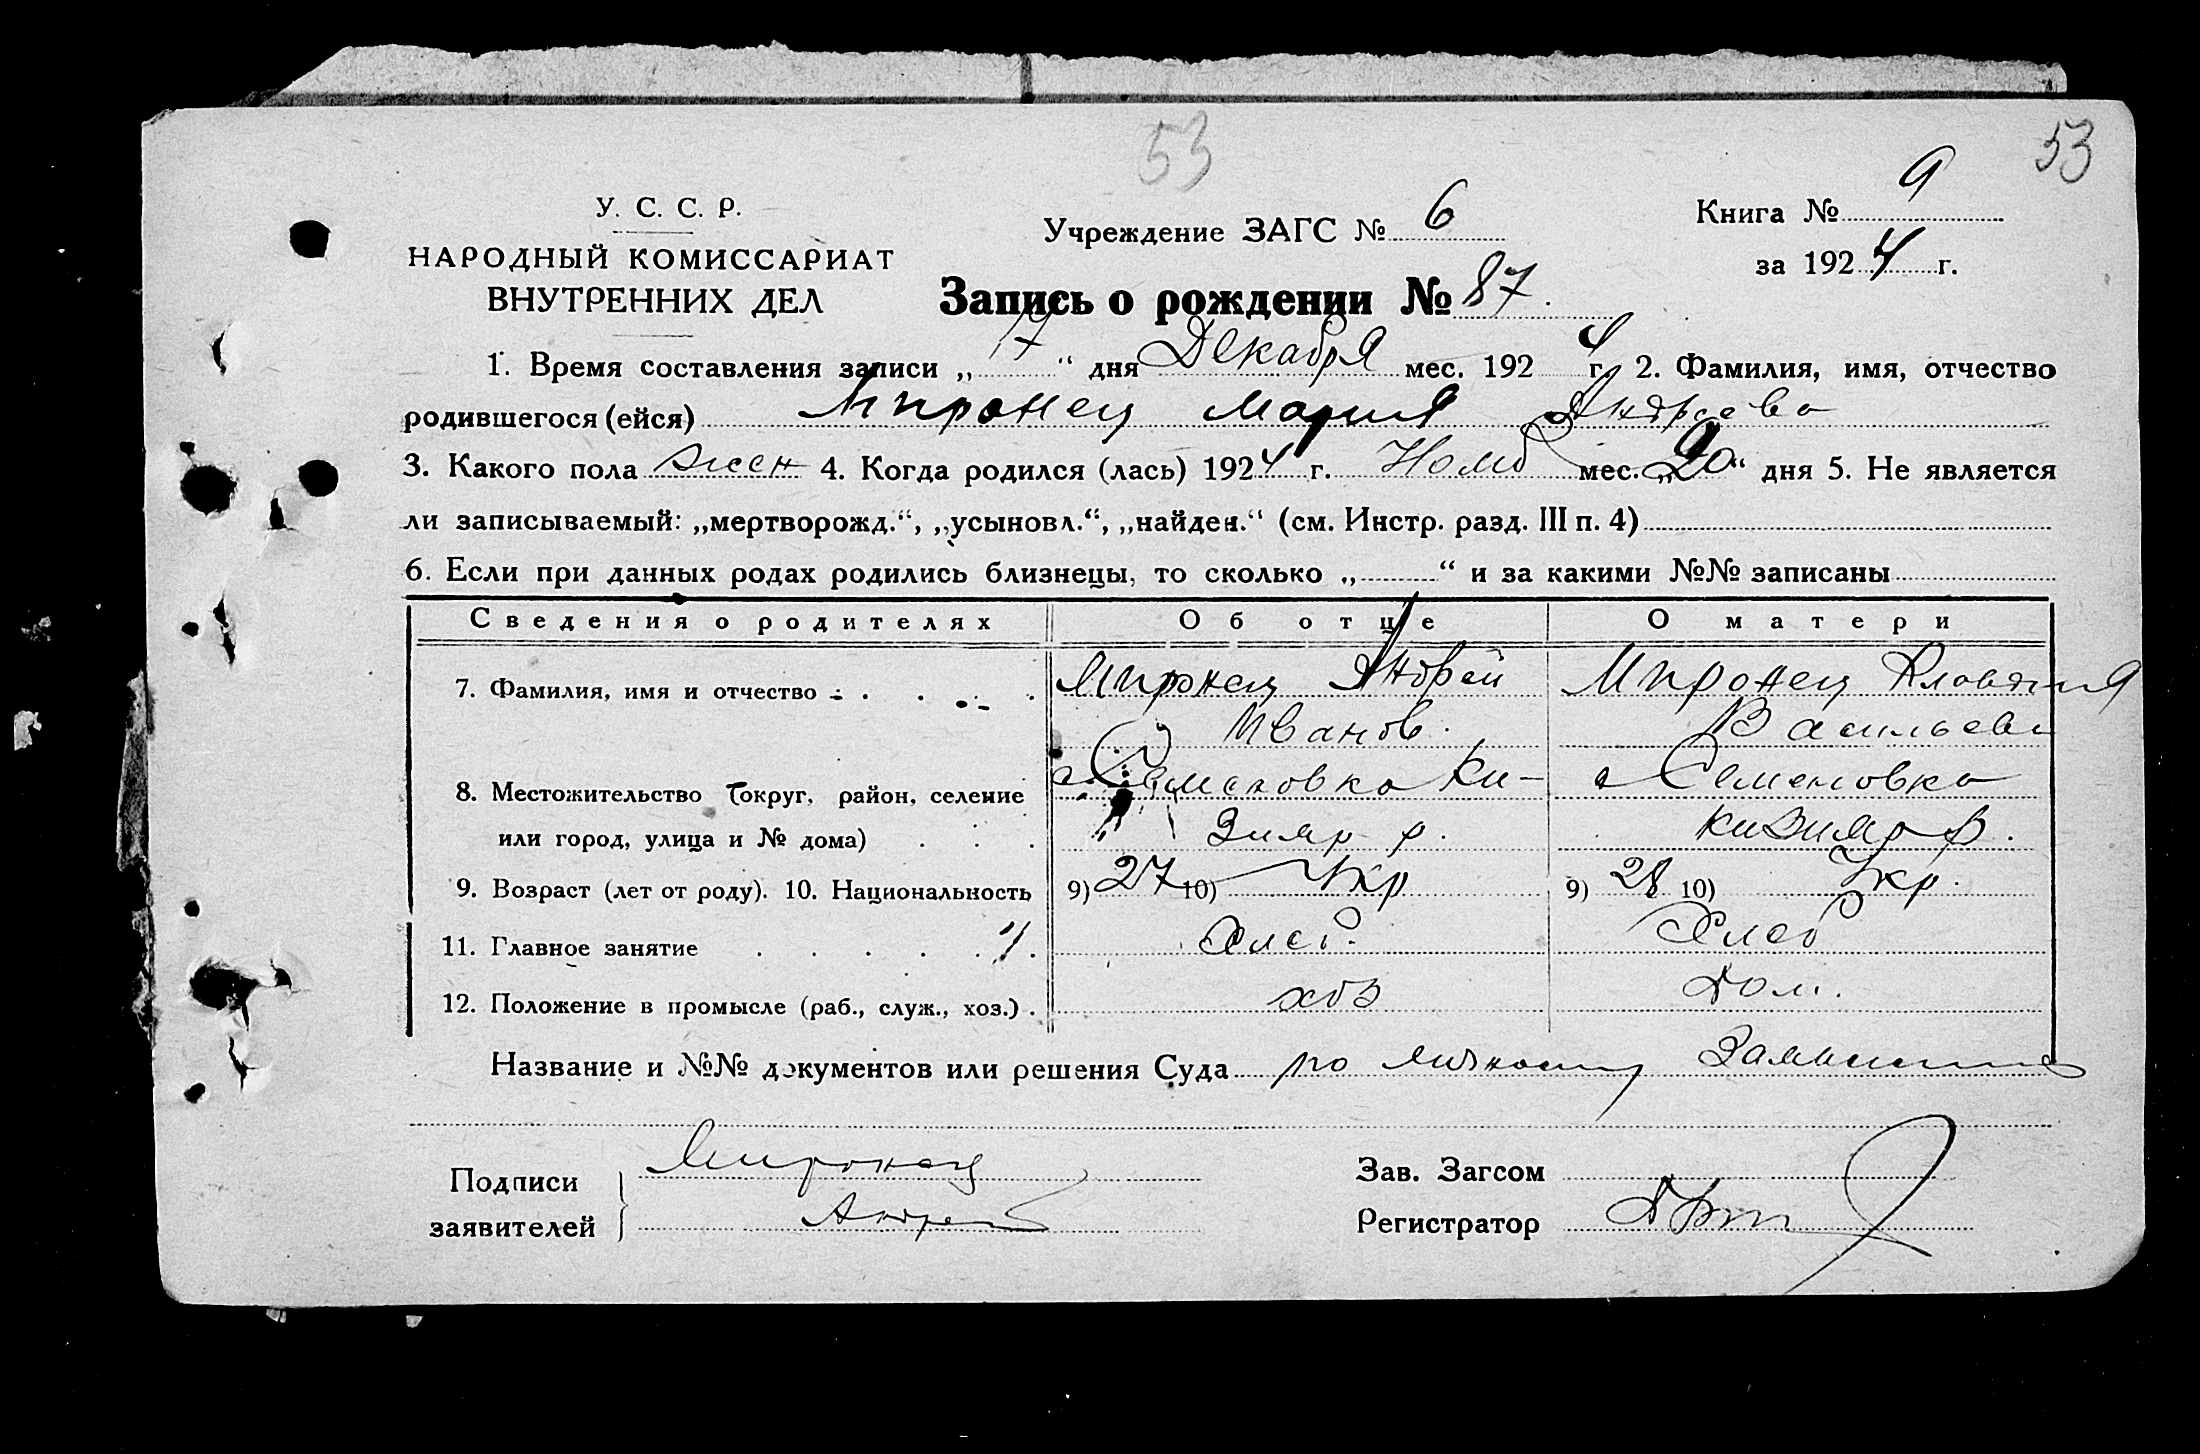 53 53
У. С. С. Р.
НАРОДНЫЙ КОМИССАРИАТ
ВНУТРЕННИХ ДЕЛ
Учреждение ЗАГС № 6
Книга № 9
за 1924 г.
Запись о рождении № 87.
1. Время составления записи „17“ дня Декабря мес. 1924 г. 2. Фамилия, имя, отчество
родившегося (ейся) Миронец Мария Андреева
3. Какого пола жен 4. Когда родился (лась) 1924 г. Нояб мес. „20“ дня 5. Не является
ли записываемый: „мертворожд.“, „усыновл.“, „найден.“ (см. Инстр. разд. III п. 4)
6. Если при данных родах родились близнецы, то сколько „ “ и за какими №№ записаны
Сведения о родителях Об отце О матери
7. Фамилия, имя и отчество Миронец Андрей Миронец Клавдия
Иванов. Васильева
8. Местожительство (округ, район, селение с. Семеновка Ки- с Семеновка
или город, улица и № дома) зияр р. Кизияр р.
9. Возраст (лет от роду). 10. Национальность 9) 27 10) Укр 9) 28 10) Укр.
11. Главное занятие Хлеб. Хлеб
12. Положение в промысле (раб., служ., хоз.) хоз Дом.
Название и №№ документов или решения Суда по личному
Подписи
заявителей
Миронец
Андрей
Зав. Загсом
Регистратор